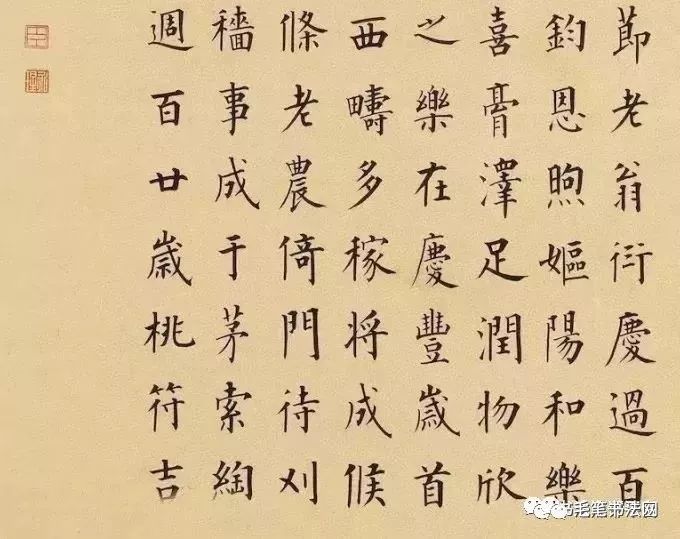 節老翁衍慶過百
鈞恩煦嫗陽和樂
喜膏澤足潤物欣
之樂在慶豐歲首
西疇多稼将成候
條老農倚門待刈
穡事成于茅索綯
週百廿歲桃符吉
毛笔书法网